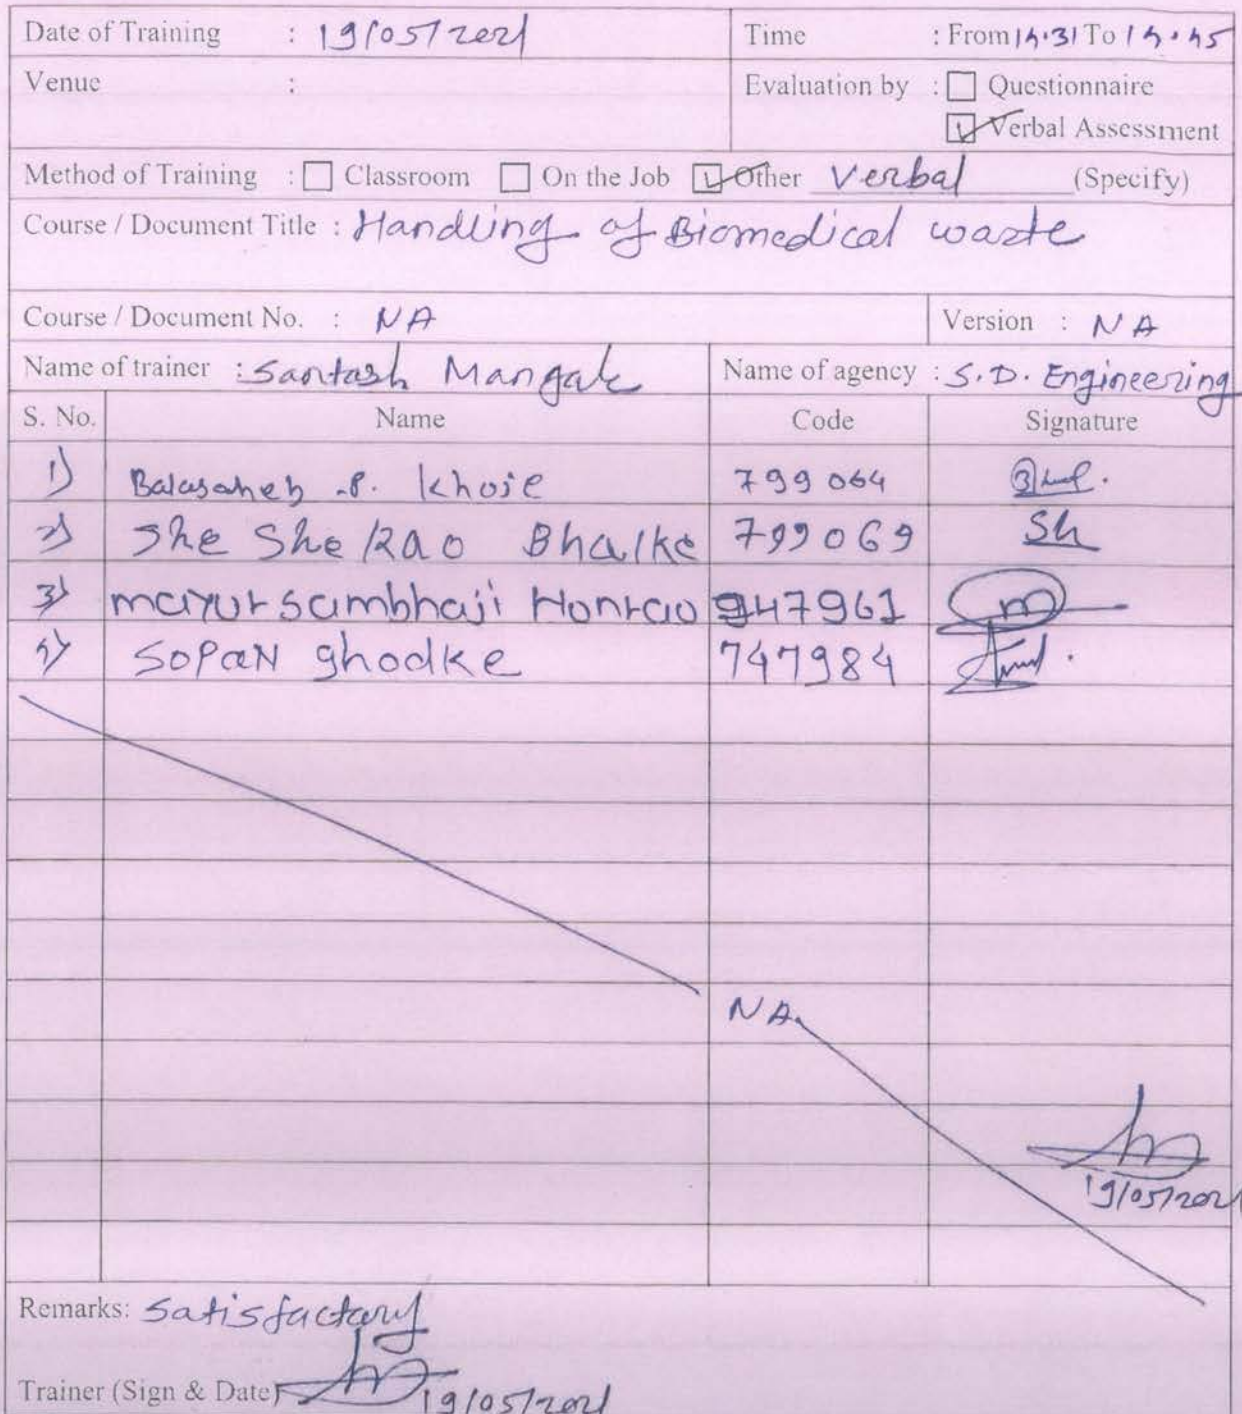 Date of Training : 19/05/2021 Time : From 14.31 To 14.45
Venue : Evaluation by : Questionnaire
Verbal Assessment
Method of Training : Classroom On the Job Other Verbal (Specify)
Course / Document Title : Handling of Biomedical waste
Course / Document No. : NA Version : NA
Name of trainer : Santosh Mangale Name of agency : S.D. Engineering
S. No. Name Code Signature
1) Balasaheb .P. Khose 799064
2) SheSheRao Bhalke 799069 Sh
3) mayur sambhaji Honrao 947961
4) SOPaN ghodke 747984
NA
19/05/2021
Remarks: Satisfactory
Trainer (Sign & Date) 19/05/2021